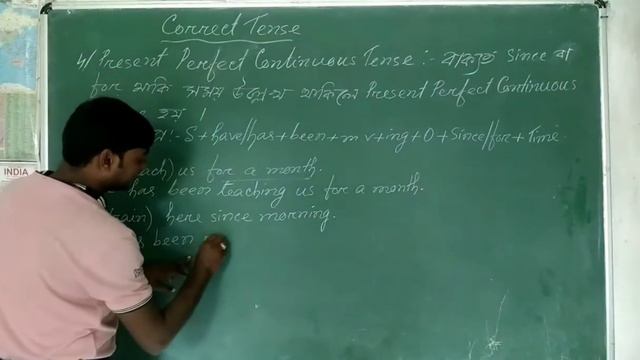 Correct Tense
4/ Present Perfect Continuous Tense :- বাক্যে since বা
for থাকি সময় উল্লেখ থাকিলে Present Perfect Continuous
হয় ।
:- S + have/has + been + m v + ing + O + Since/for + Time.
us for a month.
has been teaching us for a month.
here since morning.
been
INDIA